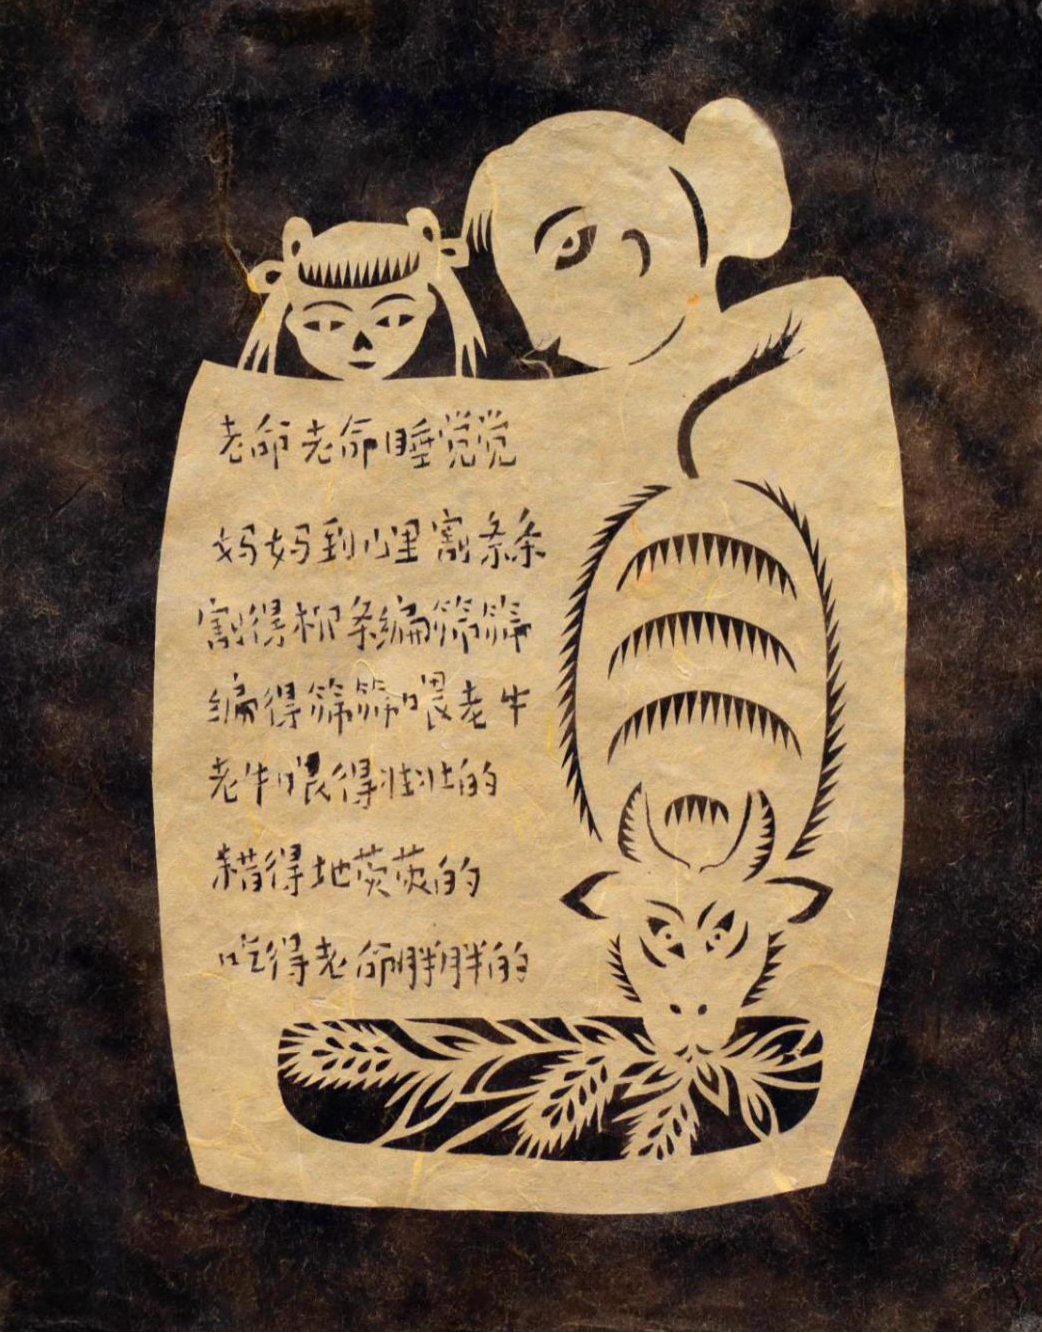 老命老命睡觉觉
妈妈到山里割条条
割得柳条编筛筛
编得筛筛喂老牛
老牛喂得壮壮的
耤得地的
吃得老命胖胖的